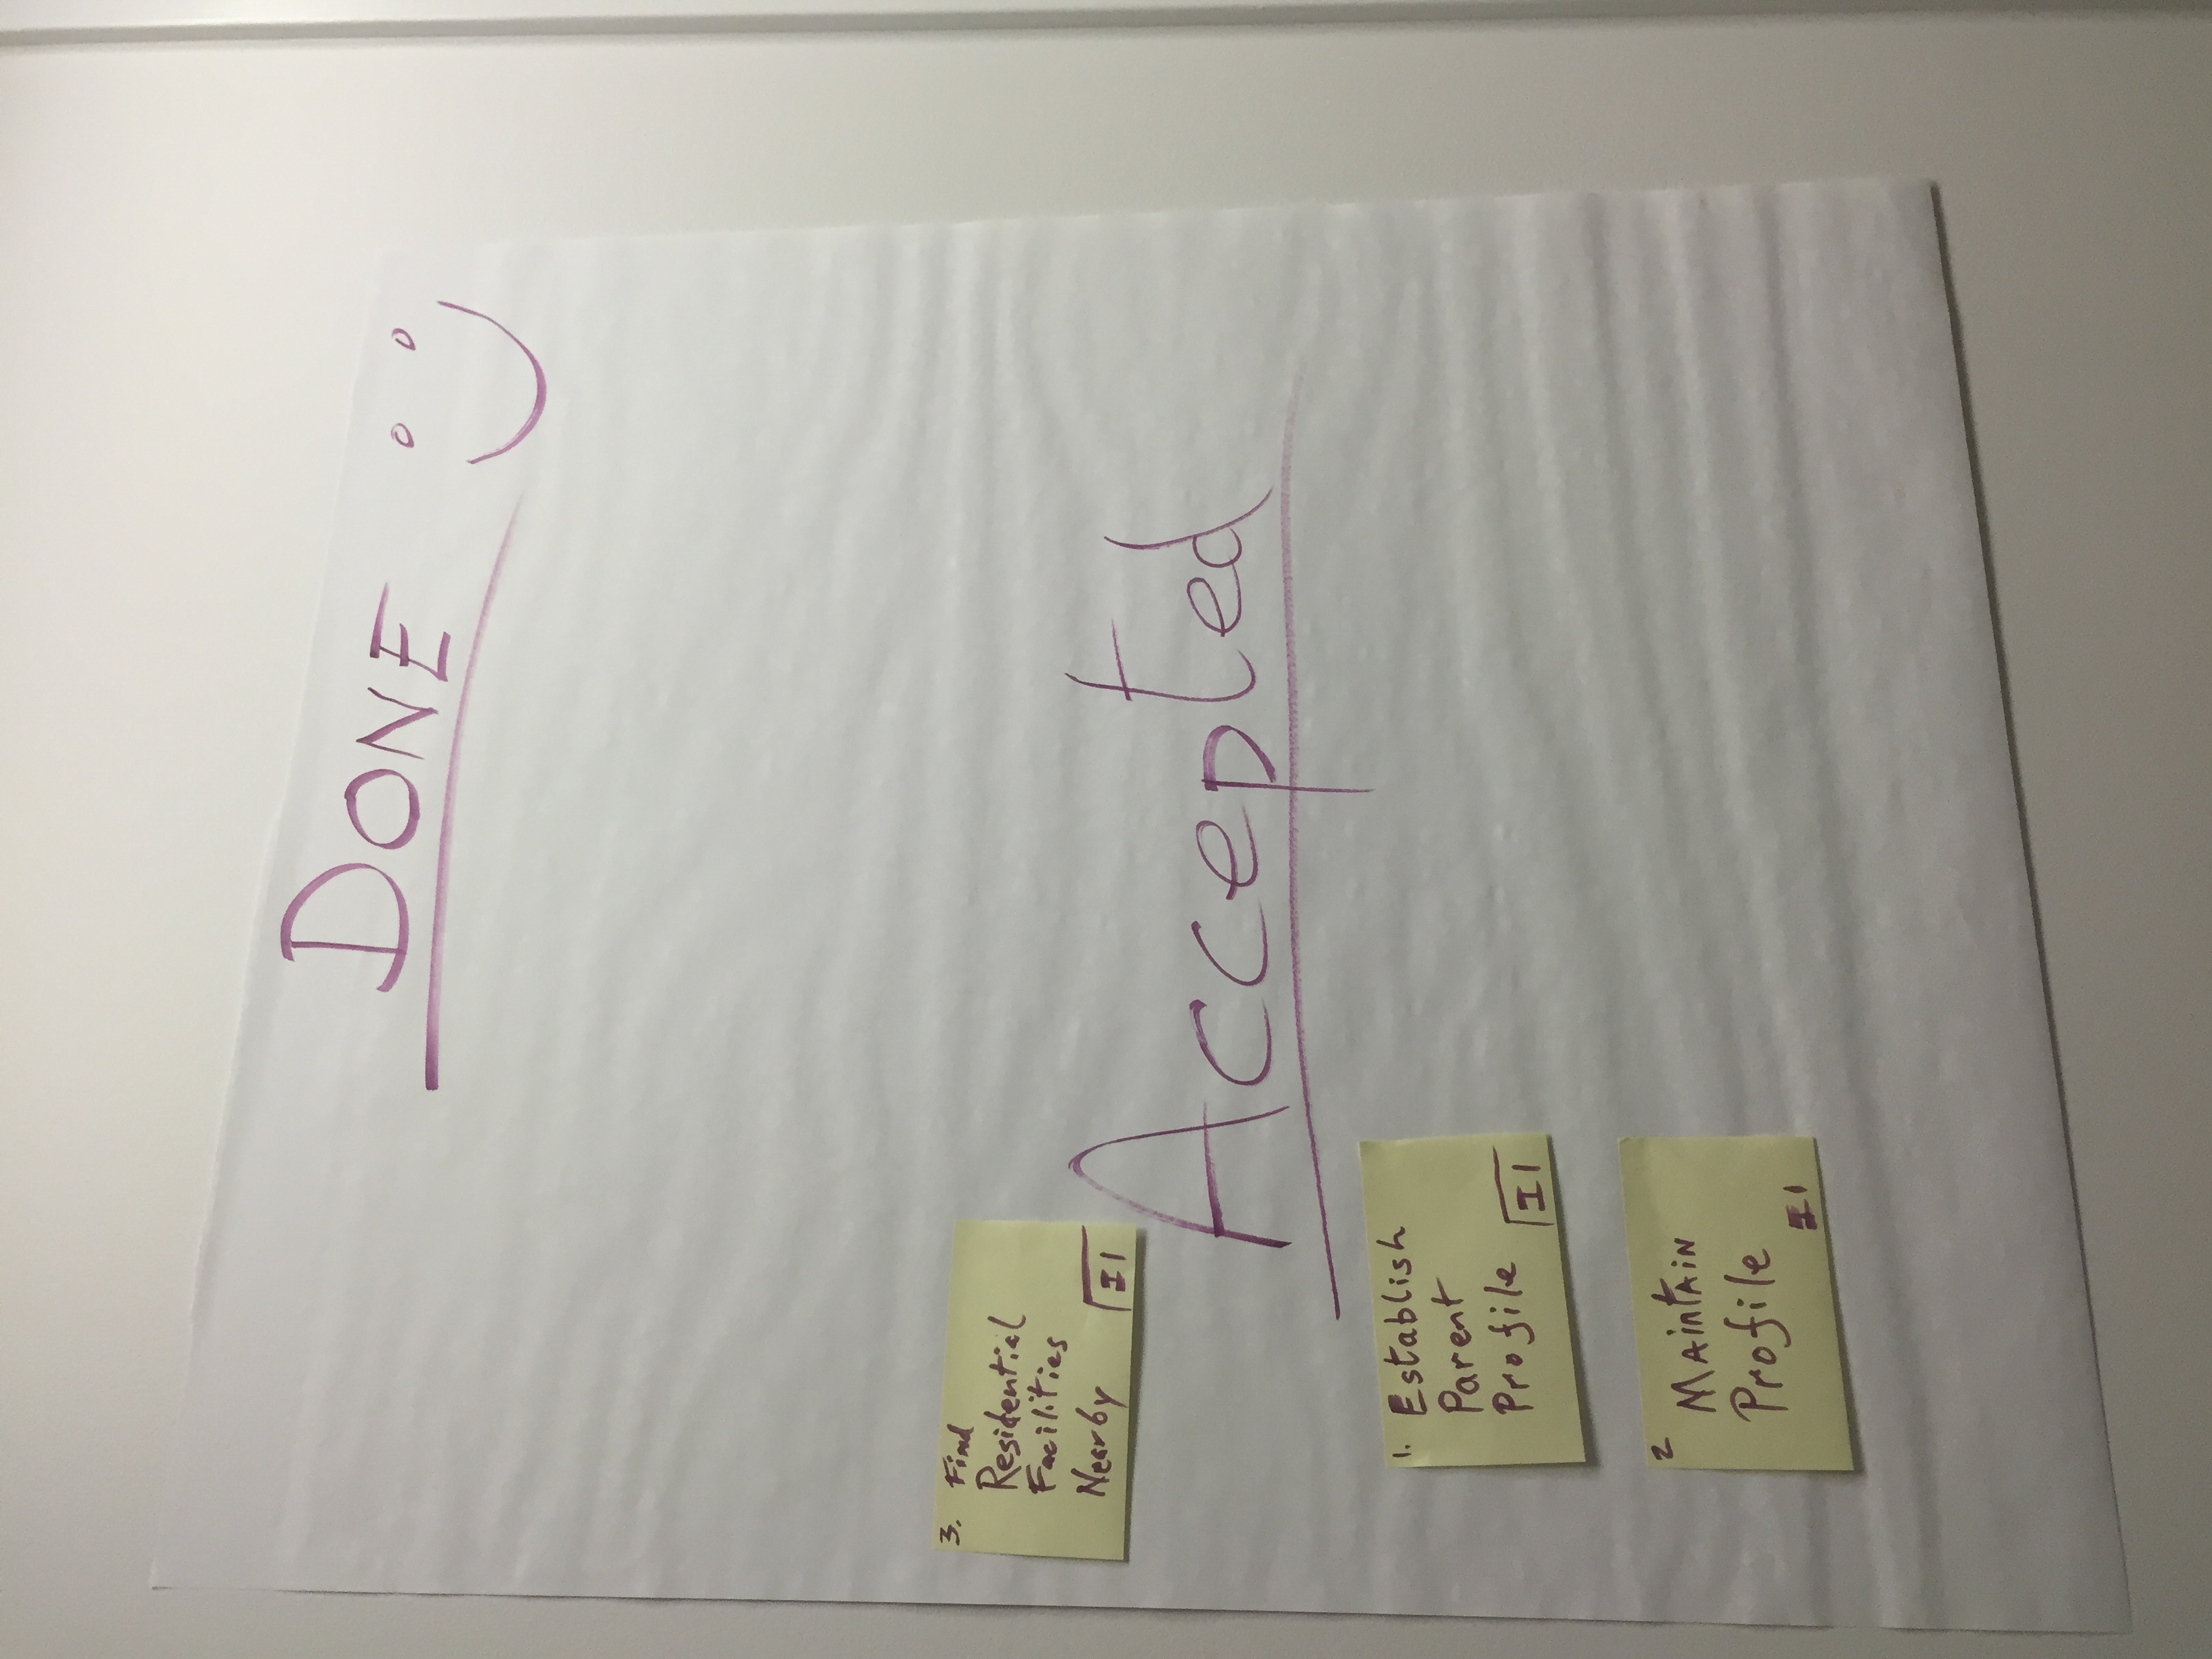 DONE
3. Find
Residential
Facilities
Nearby
I1
Accepted
1. Establish
Parent
Profile
I1
2
MAintAiN
Profile
I1